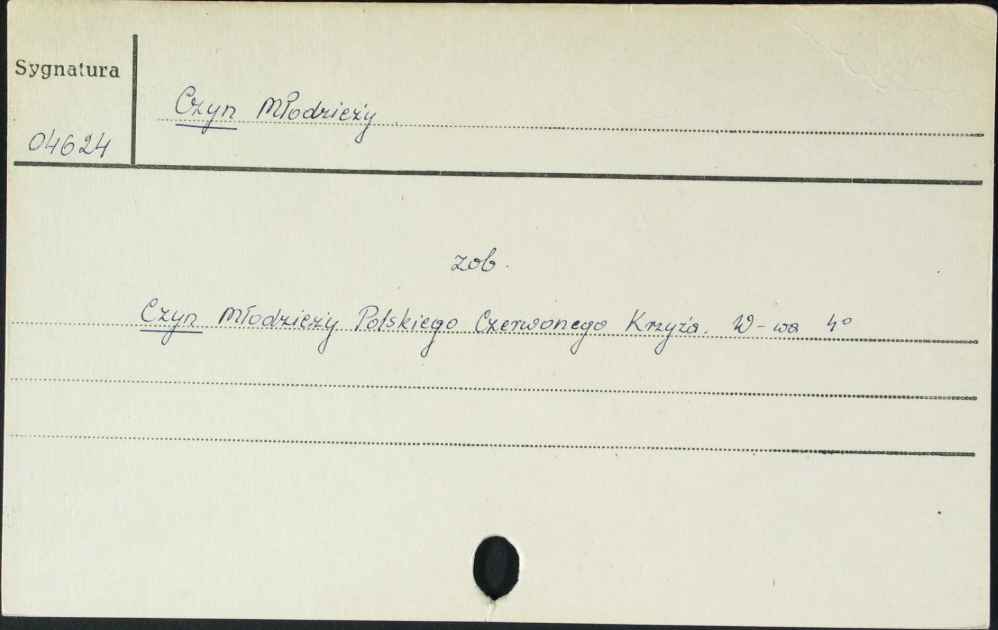 Sygnatura
Czyn Młodzieży
04624
zob.
Czyn Młodzieży Polskiego Czerwonego Krzyża. W-wa 4°